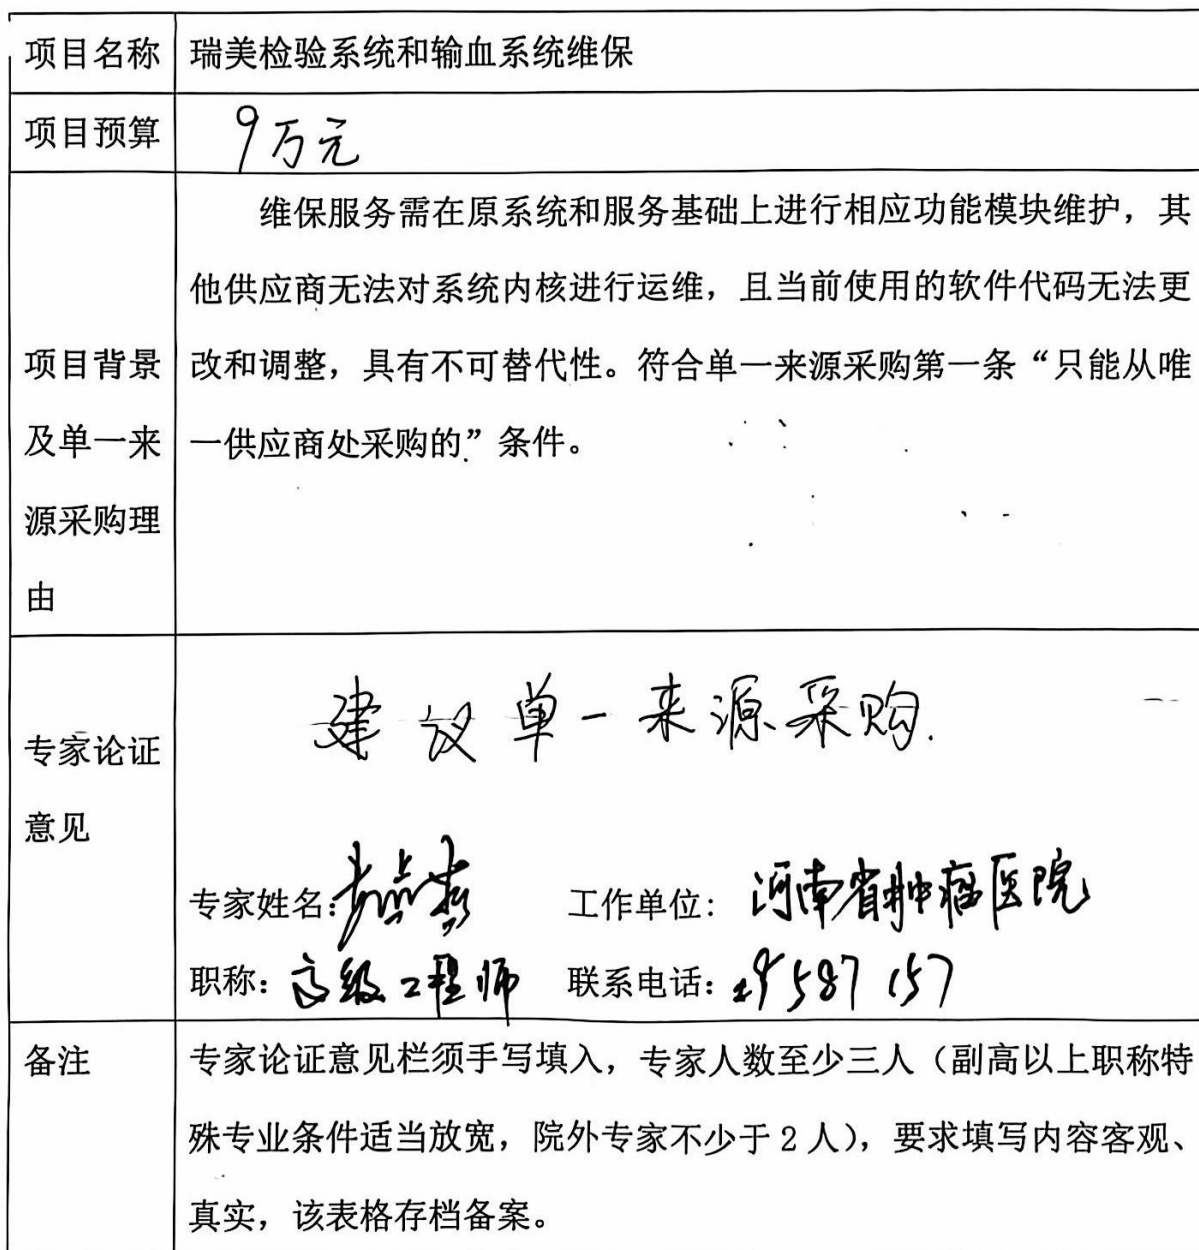 项目名称 瑞美检验系统和输血系统维保
项目预算 9万元
维保服务需在原系统和服务基础上进行相应功能模块维护，其
他供应商无法对系统内核进行运维，且当前使用的软件代码无法更
项目背景 改和调整，具有不可替代性。符合单一来源采购第一条“只能从唯
及单一来 一供应商处采购的”条件。
源采购理
由
建议单一来源采购.
专家论证
意见
专家姓名： 工作单位：河南省肿瘤医院
职称：高级工程师 联系电话：
备注 专家论证意见栏须手写填入，专家人数至少三人（副高以上职称特
殊专业条件适当放宽，院外专家不少于2人），要求填写内容客观、
真实，该表格存档备案。